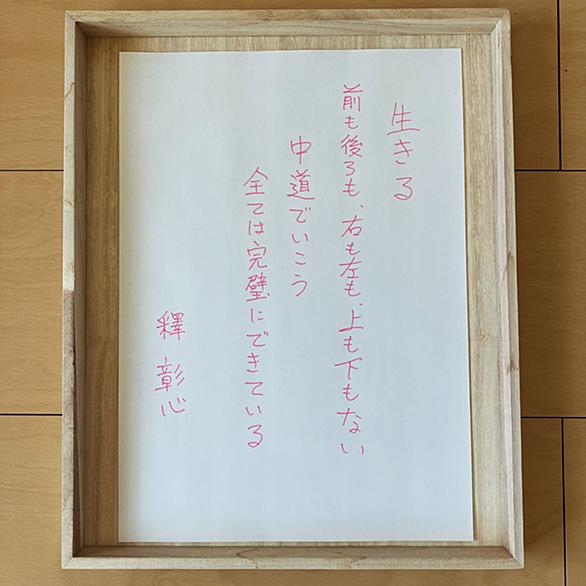 生きる
前も後ろも、右も左も、上も下もない
中道でいこう
全ては完璧にできている
釋 彰心